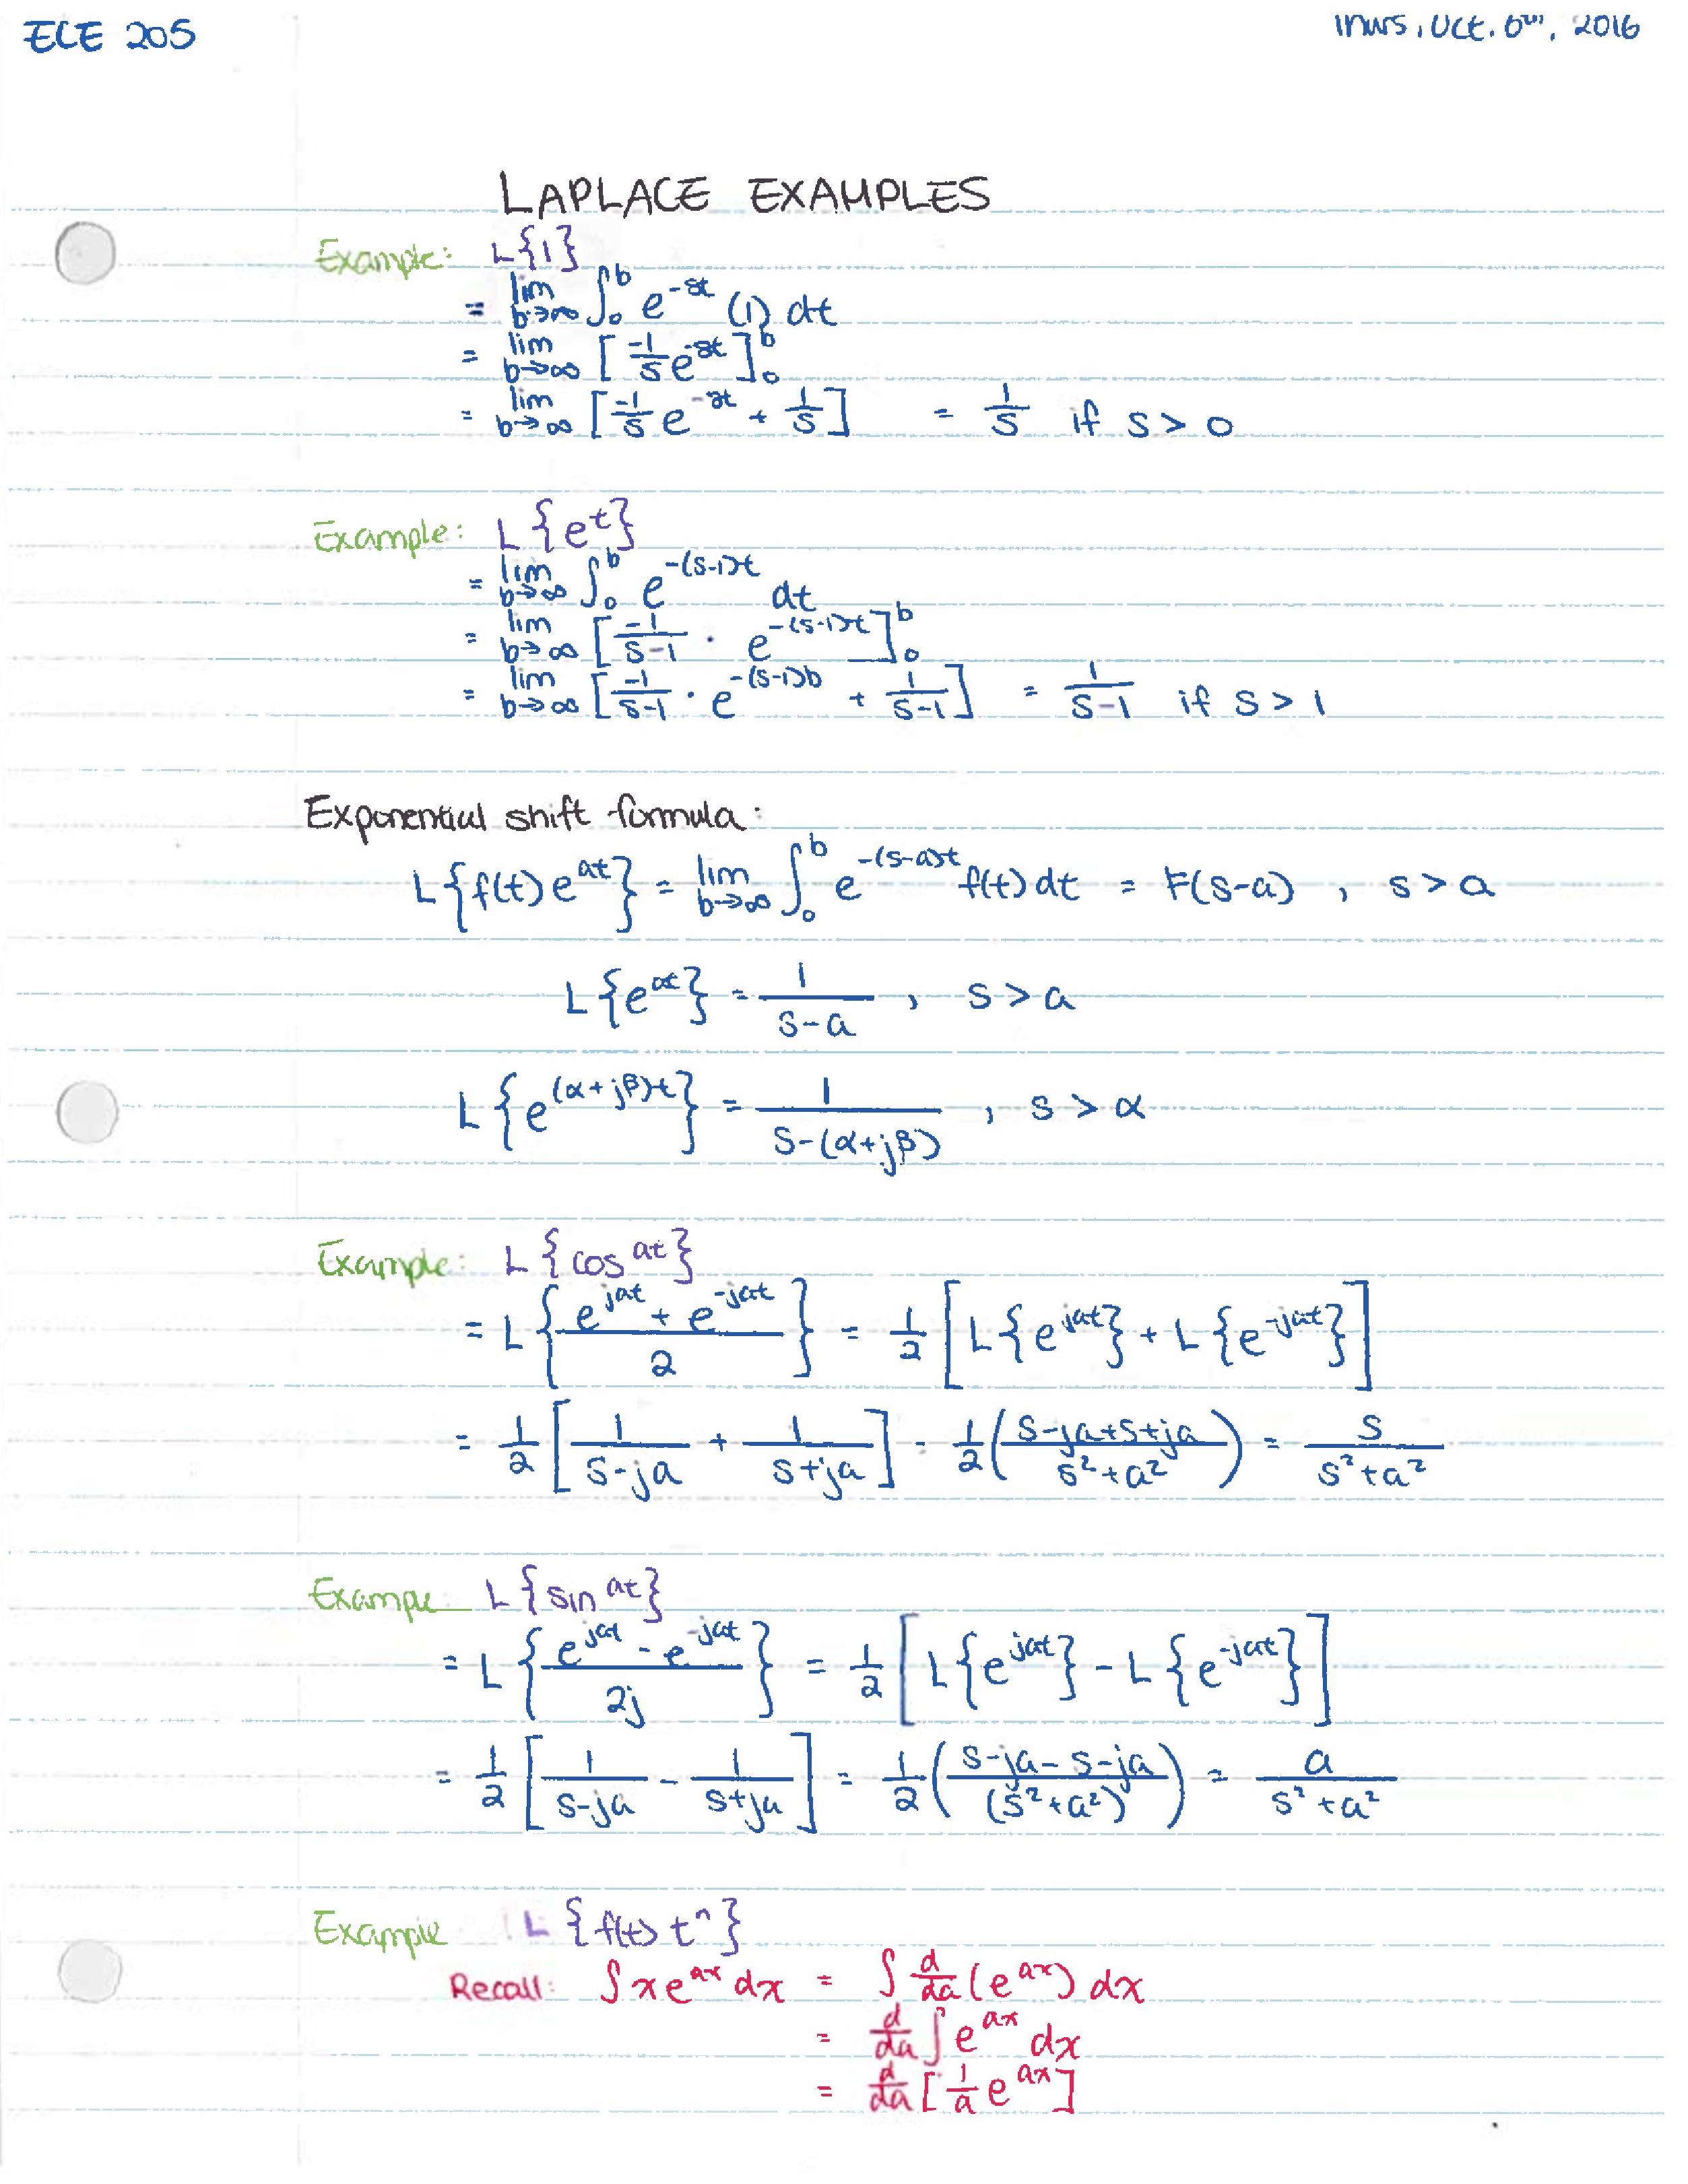 ECE 205
Thurs, Oct. 6th, 2016
LAPLACE EXAMPLES
Example: L{1}
= lim b→∞ ∫₀ᵇ e^(-st) (1) dt
= lim b→∞ [-1/s e^(-st)]₀ᵇ
= lim b→∞ [-1/s e^(-st) + 1/s] = 1/s if s > 0
Example: L{e^t}
= lim b→∞ ∫₀ᵇ e^(-(s-1)t) dt
= lim b→∞ [-1/(s-1) · e^(-(s-1)t)]₀ᵇ
= lim b→∞ [-1/(s-1) · e^(-(s-1)b) + 1/(s-1)] = 1/(s-1) if s > 1
Exponential shift formula:
L{f(t) e^(at)} = lim b→∞ ∫₀ᵇ e^(-(s-a)t) f(t) dt = F(s-a) , s > a
L{e^(at)} = 1/(s-a) , s > a
L{e^((α+jβ)t)} = 1/(s-(α+jβ)) , s > α
Example: L{cos at}
= L{(e^(jat) + e^(-jat))/2} = 1/2 [L{e^(jat)} + L{e^(-jat)}]
= 1/2 [1/(s-ja) + 1/(s+ja)] = 1/2 ((s-ja+s+ja)/(s²+a²)) = s/(s²+a²)
Example L{sin at}
= L{(e^(jat) - e^(-jat))/2j} = 1/2 [L{e^(jat)} - L{e^(-jat)}]
= 1/2 [1/(s-ja) - 1/(s+ja)] = 1/2 ((s-ja-s-ja)/(s²+a²)) = a/(s²+a²)
Example L{f(t) t^n}
Recall: ∫xe^(ax) dx = ∫ d/da (e^(ax)) dx
= d/da ∫e^(ax) dx
= d/da [1/a e^(ax)]